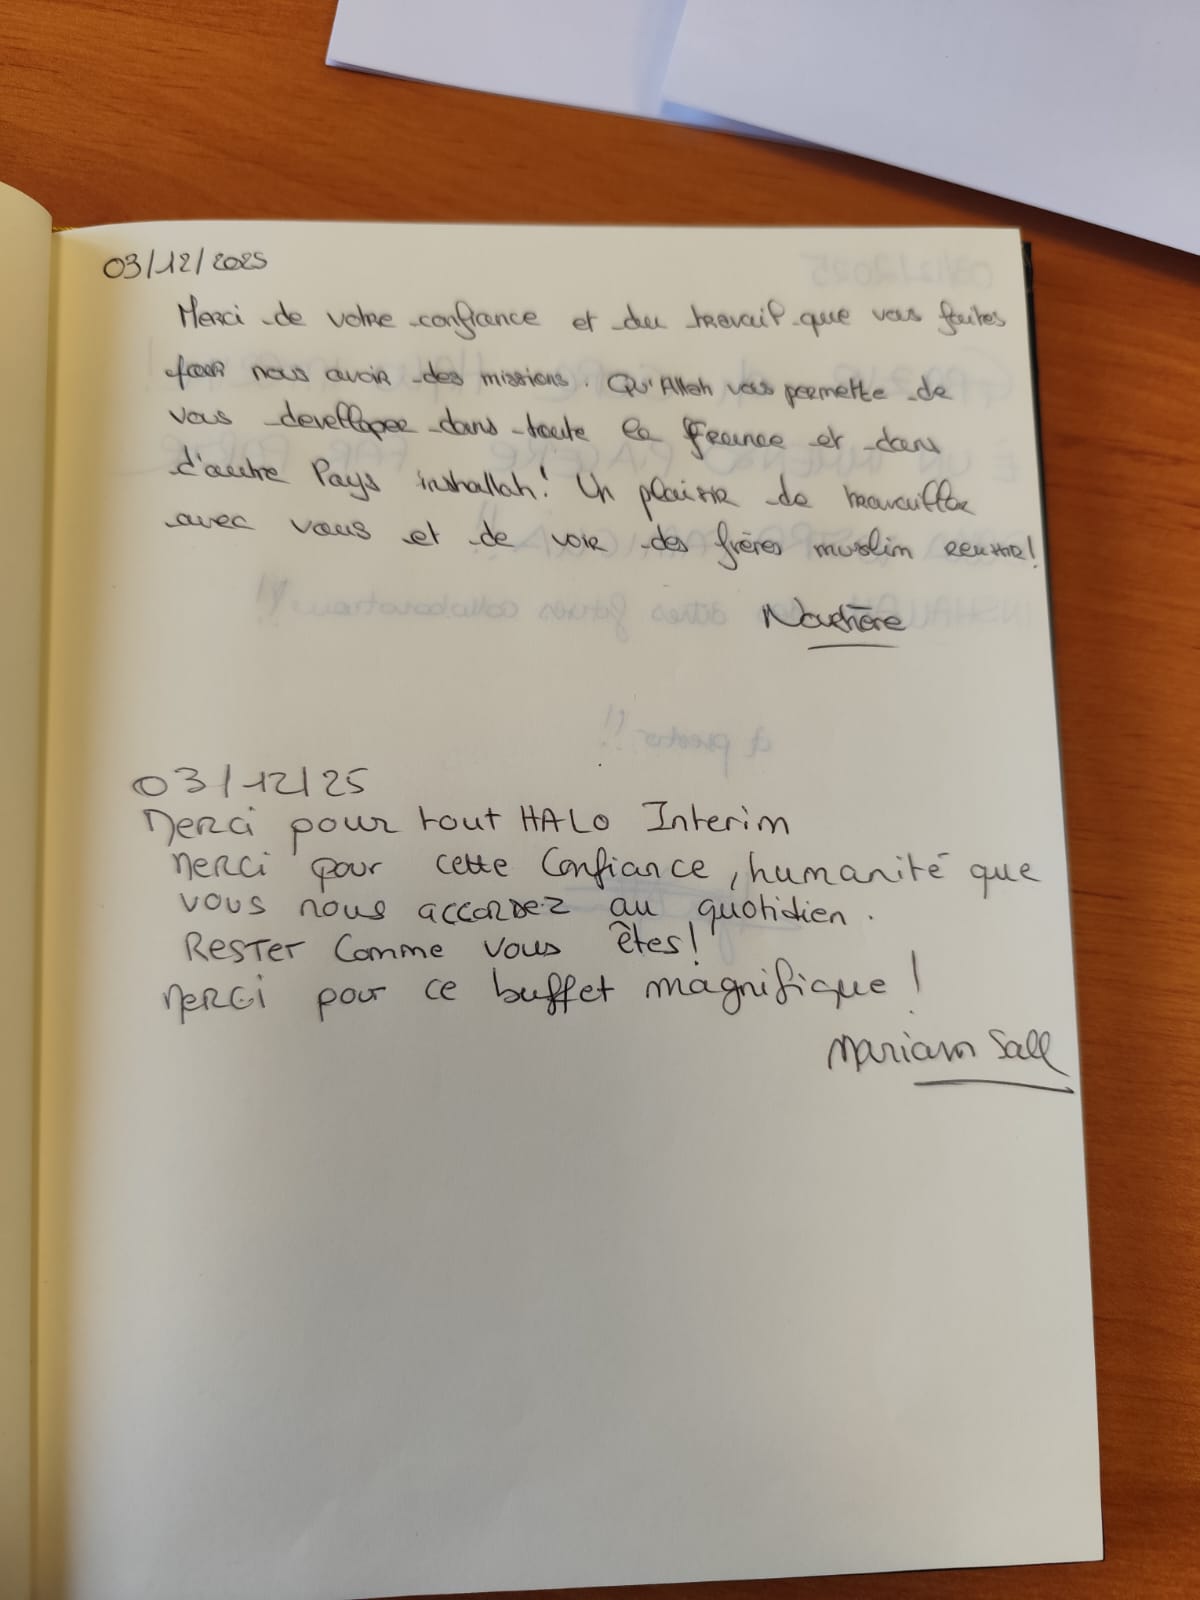 03/12/2025
Merci de votre confiance et du travail que vous faites
pour nous avoir des missions. Qu'Allah vous permette de
vous develloper dans toute la France et dans
d'autre Pays inshallah! Un plaisir de travailler
avec vous et de voir des frères muslim reussir!
03/12/25
Merci pour tout HALO Interim
Merci pour cette Confiance, humanité que
vous nous accordez au quotidien.
Rester Comme vous êtes!
Merci pour ce buffet magnifique!
Mariam Sall